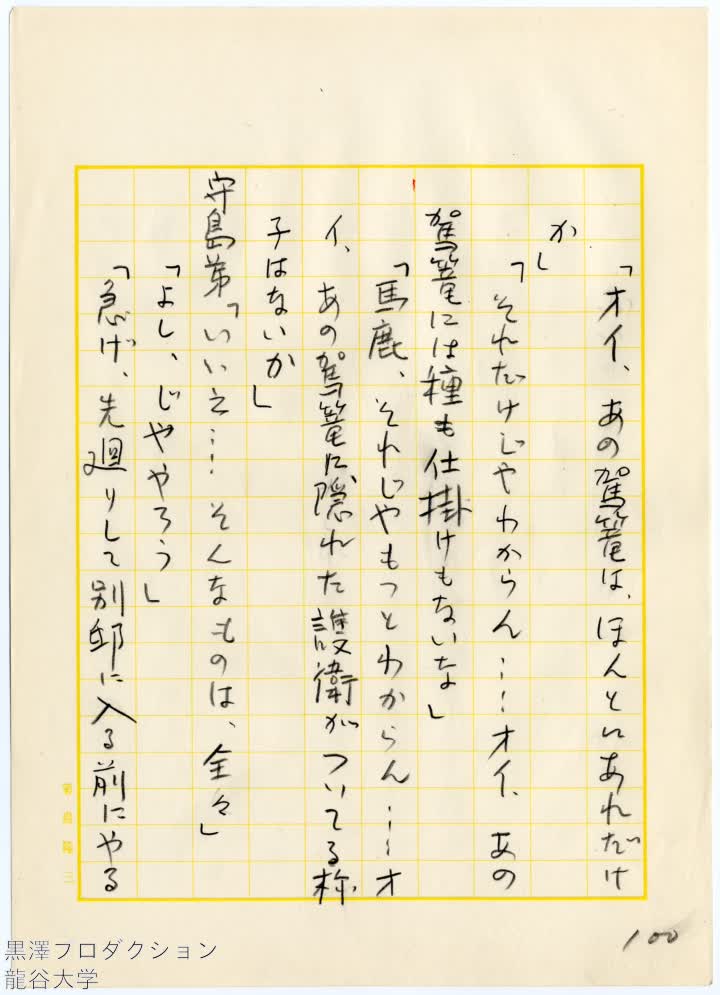 「オイ、あの駕篭は、ほんとにあれだけ
か」
「それだけじゃわからん……オイ、あの
駕篭には種も仕掛けもないな」
「馬鹿、それじゃもっとわからん……オ
イ、あの駕篭に隠れた護衛がついてる様
子はないか」
守島弟「いいえ…… そんなものは、全々」
「よし、じゃやろう」
「急げ、先廻りして別邸に入る前にやる
100
黒澤プロダクション
龍谷大学